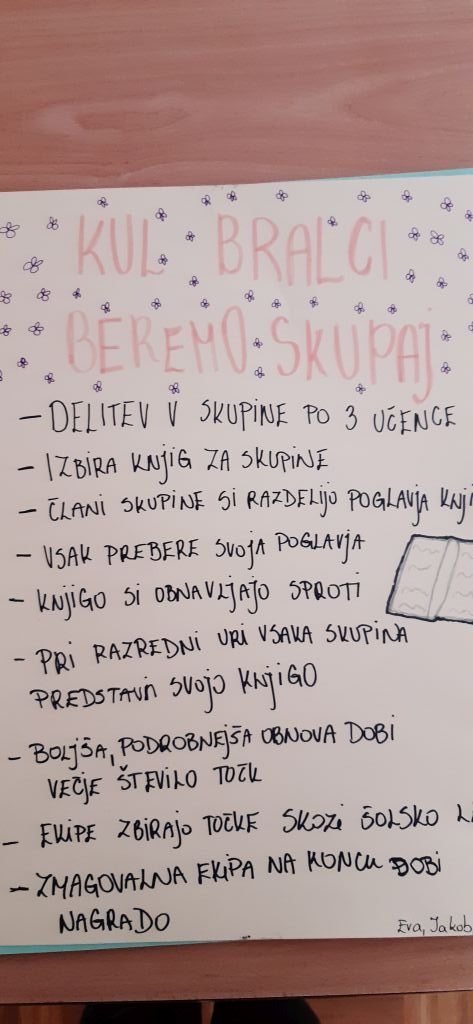 KUL BRALCI
BEREMO SKUPAJ
- DELITEV V SKUPINE PO 3 UČENCE
- IZBIRA KNJIG ZA SKUPINE
- ČLANI SKUPINE SI RAZDELIJO POGLAVJA KNJI
- VSAK PREBERE SVOJA POGLAVJA
- KNJIGO SI OBNAVLJAJO SPROTI
- PRI RAZREDNI URI VSAKA SKUPINA
PREDSTAVI SVOJO KNJIGO
- BOLJŠA, PODROBNEJŠA OBNOVA DOBI
VEČJE ŠTEVILO TOČK
- EKIPE ZBIRAJO TOČKE SKOZI ŠOLSKO L
- ZMAGOVALNA EKIPA NA KONCU DOBI
NAGRADO
Eva, Jakob